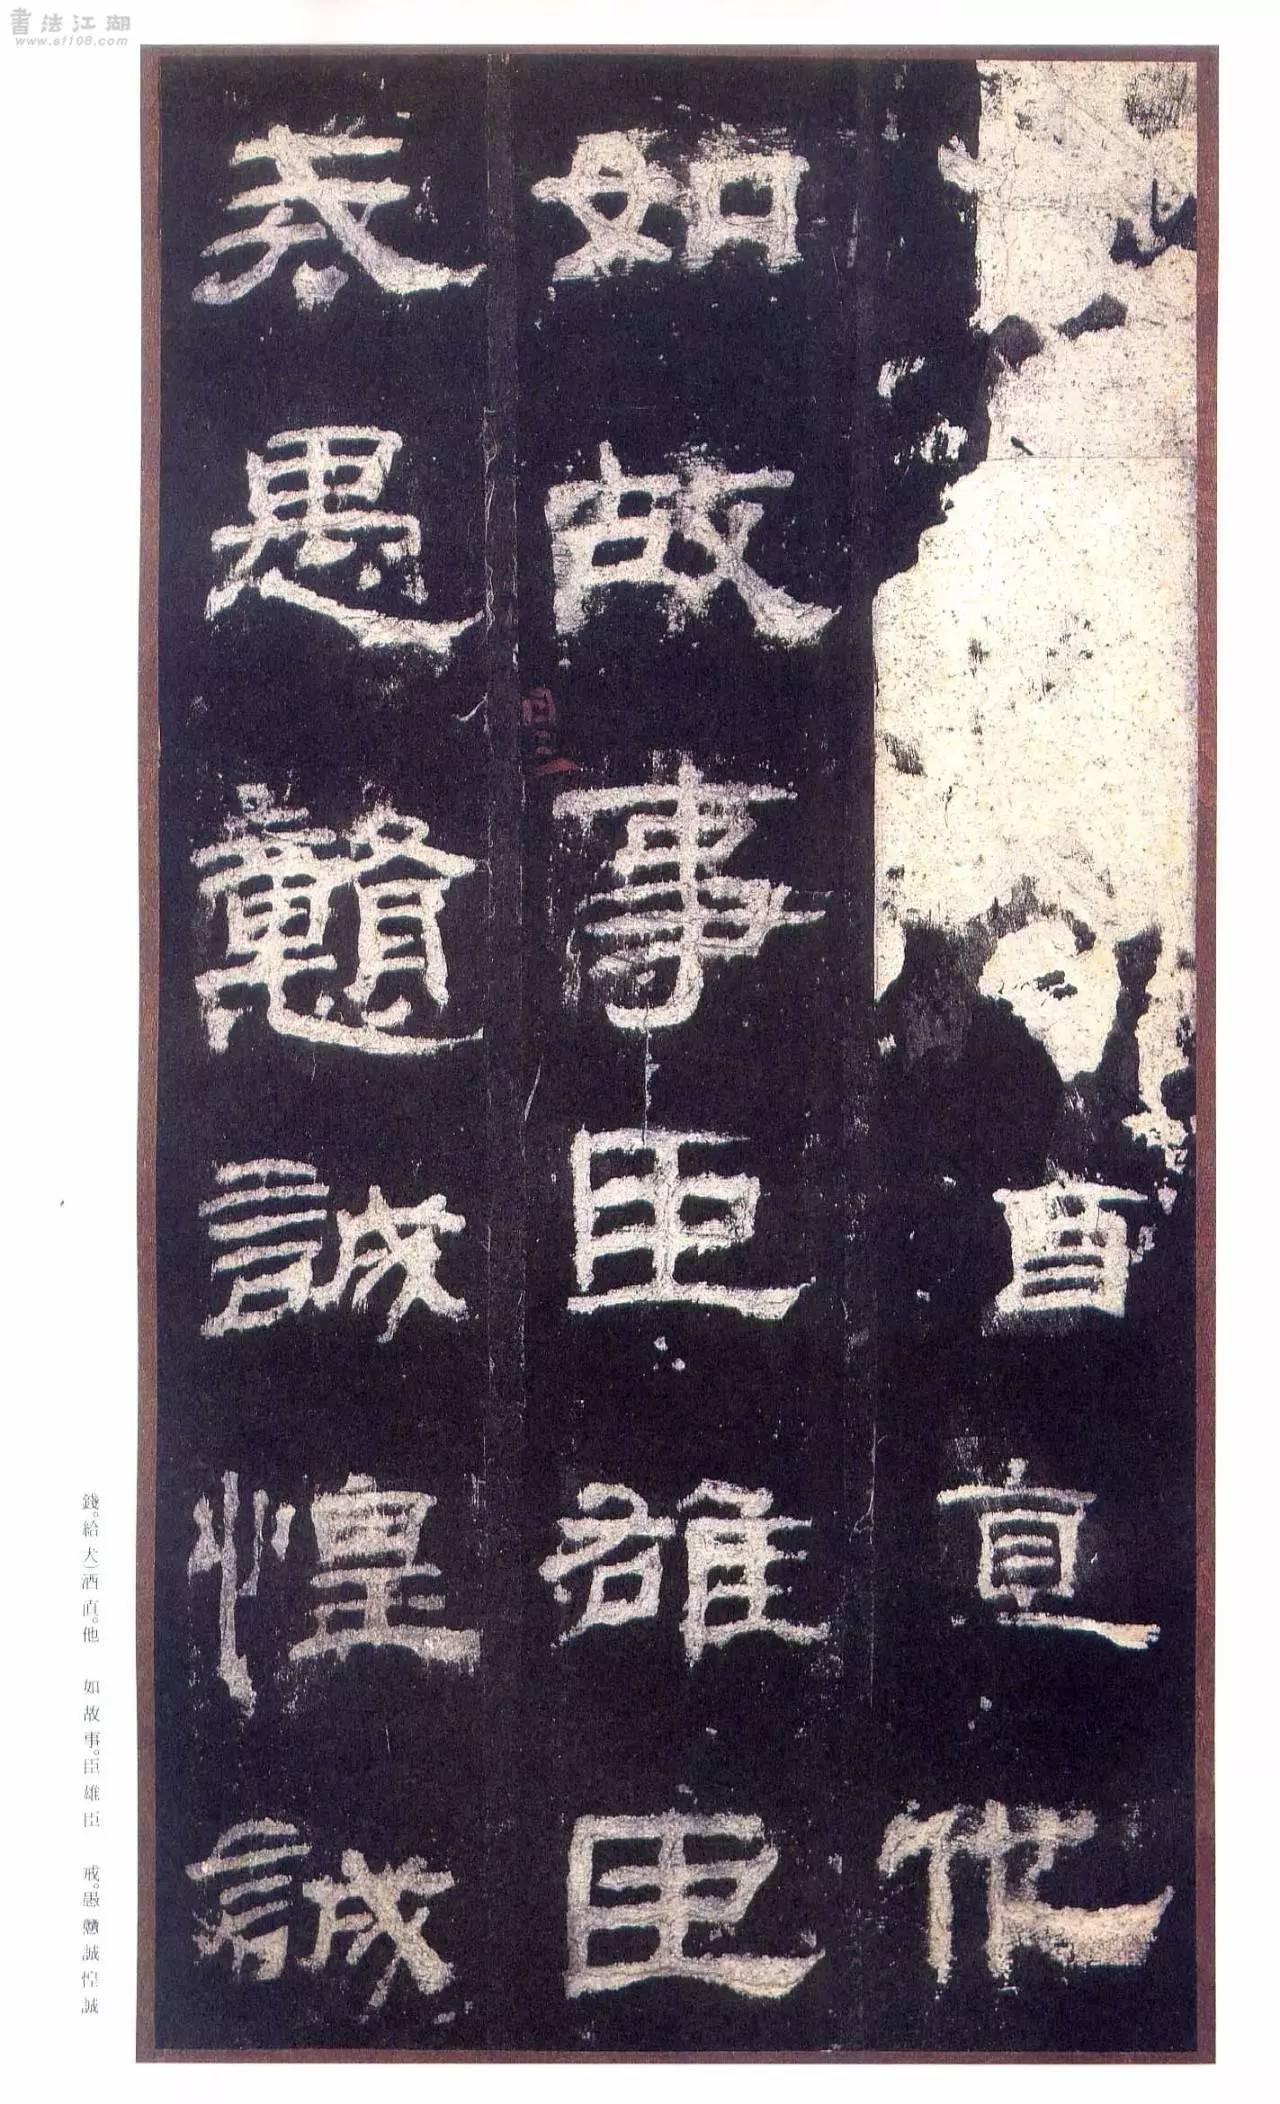 書法江湖
www.sf108.com
酒直他
如故事臣雄臣
戒愚戇誠惶誠
錢。給犬）酒直。他　如故事。臣雄臣　戒。愚戇誠惶誠